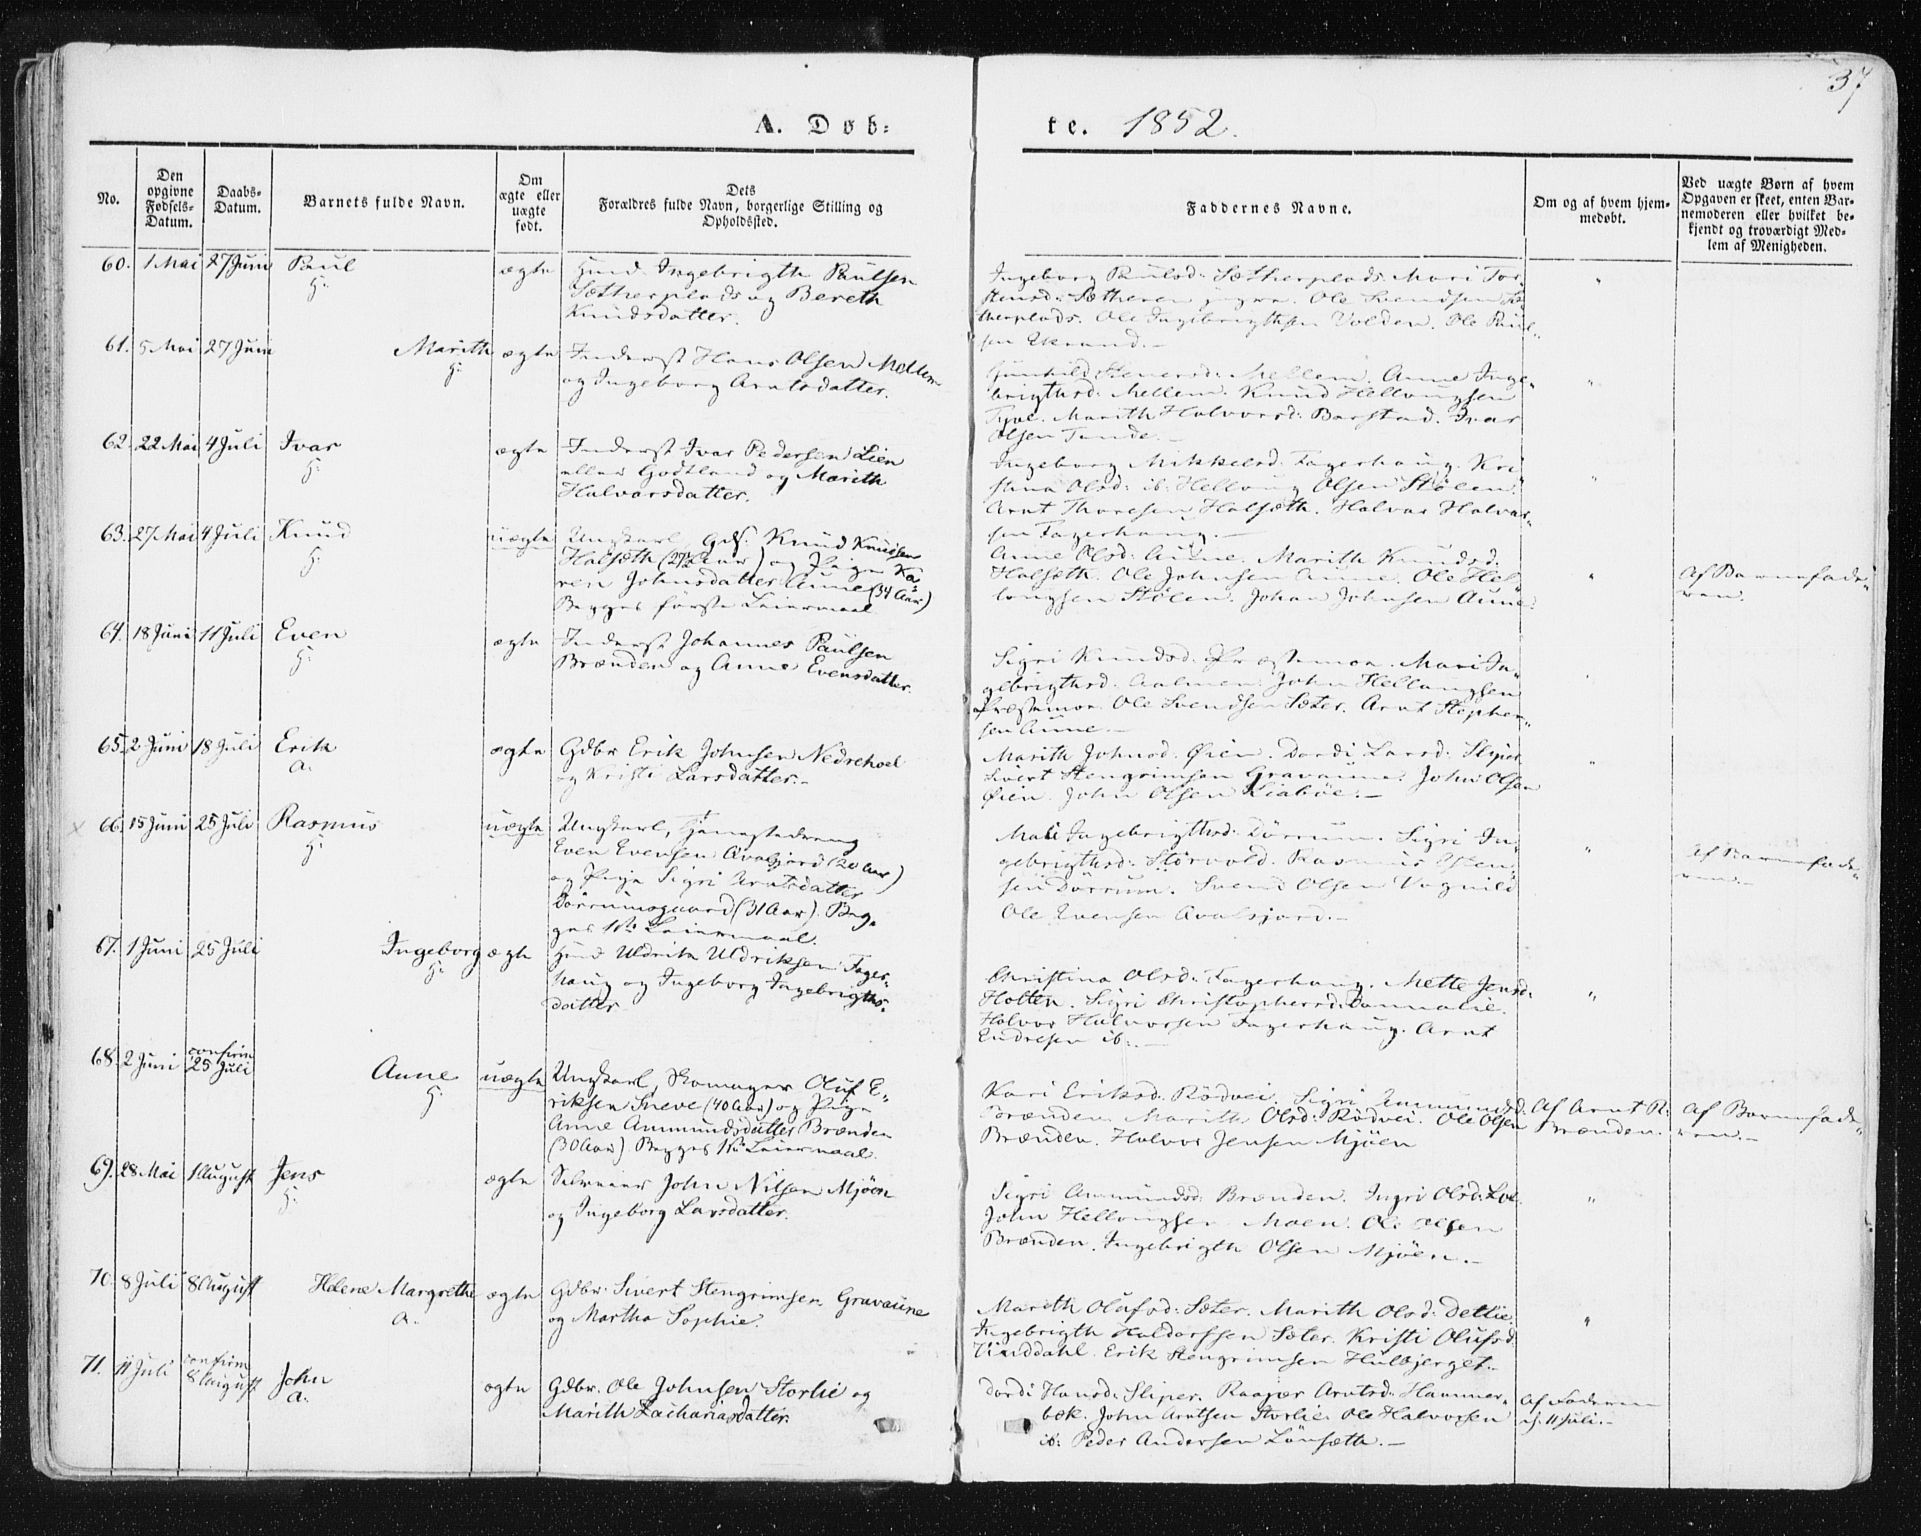 37
A. Døb-
te. 1852.
No.
Den opgivne Fødsels-Datum.
Daabs-Datum.
Barnets fulde Navn.
Om ægte eller uægte født.
Dets
Forældres fulde Navn, borgerlige Stilling og
Opholdssted.
Faddernes Navne.
Om og af hvem hjem-
medøbt.
Ved uægte Børn af hvem
Opgaven er skeet, enten Bar-
nemoderen eller hvilket be-
kjendt og troværdigt Med-
lem af Menigheden.
60. 1 Mai 27 Juni Paul H: ægte
Huusd. Ingebrigth Paulsen
Sætherplads og Bereth
Knudsdatter.
Ingeborg Paulsd: Sætherplads Mari Tor-
stensd: Sætheren Ole Svendsen Sæ-
therplads. Ole Ingebrigthsen Volden. Ole Paul-
sen
61. 5 Mai 27 Juni Marith H: ægte
Inderst Hans Olsen Mellem
og Ingeborg Arntsdatter.
Gunhild Stenersd: Mellem. Anne Inge-
brigthsd: Mellem. Knud Hellougsen
Marith Halvorsd: Barstad. Ivar
Olsen Tande.-
62. 22 Mai 4 Juli Ivar H: ægte
Inderst Ivar Pedersen Lien
eller Godtland og Marith
Halvorsdatter.
Ingeborg Mikkelsd. Fagerhaug. Kri-
stina Olsd: ib. Helloug Olsen Stølen.
Arnt Thoresen Halsæth. Halvor Halvor-
sen Fagerhaug.-
63. 27 Mai 4 Juli Knud H: uægte
Ungkarl, Gds. Knud Knudsen
Halsæth (27½ Aar) og Pige Ka-
ren Johnsdatter Aune (34 Aar)
Begges første Leiermaal
Anne Olsd: Aune. Marith Knudsd.
Halsæth. Ole Johnsen Aune. Ole Hel-
lougsen Stølen. Johan Johnsen Aune.
Af Barnefade-
ren.
64. 18 Juni 11 Juli Even H: ægte
Inderst Johannes Paulsen
Brænden og Anne Evensdatter.
Sigri Knudsd. Præstmoe. Mari In-
gebrigthsd. Aalmen. John Hellougsen
Præstmoe. Ole Svendsen Sæter. Arnt Stephen-
sen Aune.-
65. 2 Juni 18 Juli Erik A. ægte
Gdbr Erik Johnsen Nedrehoel
og Kristi Larsdatter.-
Marith Johnsd. Øien. Dordi Larsd: Sliper.
Sivert Stengrimsen Gravaune. John Olsen
Øien. John Olsen Liabøe.-
66. 15 Juni 25 Juli Rasmus H: uægte
Ungkarl, Tjenestedreng
Even Evensen Avalsjord (20 Aar)
og Pige Sigri Arntsdatter
Dørrumsgaard (31 Aar). Beg-
ges 1ste Leiermaal.
Mali Ingebrigthsd. Dørrum. Sigri In-
gebrigthsd: Størvold. Rasmus Esten-
sen Dørrum. Svend Olsen Vognild
Ole Evensen Avalsjord.-
Af Barnefade-
ren.-
67. 1 Juni 25 Juli Ingeborg H: ægte
Huusd Uldrik Uldriksen Fager-
haug og Ingeborg Ingebrigths-
datter
Christina Olsd: Fagerhaug. Mette Jensd:
Holten. Sigri Christophersd: Donnalie.
Halvor Halvorsen Fagerhaug. Arnt
Endresen ib:.-
68. 2 Juni confirm 25 Juli Anne H: uægte
Ungkarl, Skomager Oluf E-
riksen Sneve (40 Aar) og Pige
Anne Ammundsdatter Brænden
(30 Aar) Begges 1ste Leiermaal.
Kari Eriksd. Rødvei. Sigri Ammundsd.
Brænden Marith Olsd: Rødvei. Ole Olsen
Brænden. Halvor Jensen Mjøen
Af Arnt R:
Brænden.
Af Barnefade-
ren.-
69. 28 Mai 1 August Jens H: ægte
Selveier John Nilsen Mjøen
og Ingeborg Larsdatter.
Sigri Ammundsd: Brænden. Ingri Olsd: Loe.
John Hellougsen Moen. Ole Olsen
Brænden. Ingebrigth Olsen Mjøen.-
70. 8 Juli 8 August Helene Margrethe A. ægte
Gdbr: Sivert Stengrimsen Gravaune
og Martha Sophie.
Marith Olufsd: Sæter. Marith Olsd: Detlie.
Ingebrigth Haldorssen Sæter. Kristi Olufsd:
Vinddahl. Erik Stengrimsen Hulbjerget.-
71. 11 Juli confirm 8 August John A. ægte
Gdbr. Ole Johnsen Storlie og
Marith Zachariasdatter.
Dordi Hansd: Sliper. Raajer Arntsd: Hammer-
bæk. John Arntsen Storlie. Ole Halvorsen
ib: Peder Andersen Lønsæth.-
Af Faderen
d. 11 Juli.-